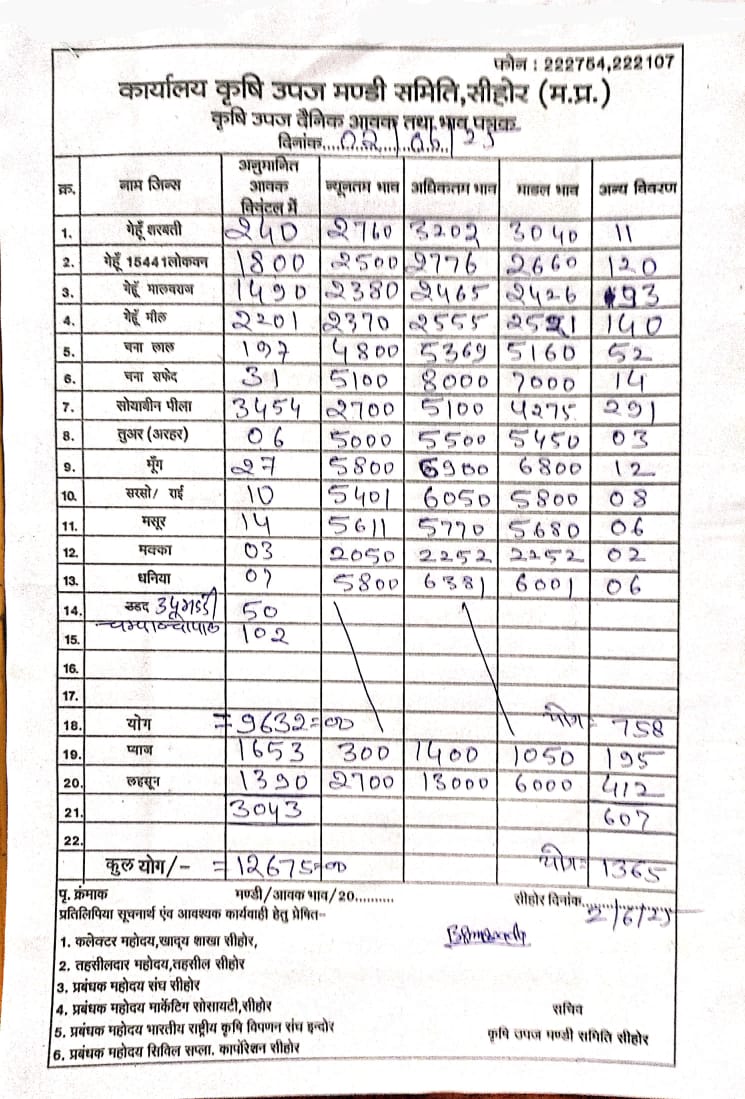 फोन : 222754,222107
कार्यालय कृषि उपज मण्डी समिति,सीहोर (म.प्र.)
कृषि उपज दैनिक आवक तथा भाव पत्रक
दिनांक....02/06/25
क्र. नाम जिन्स अनुमानित आवक क्विंटल में न्यूनतम भाव अधिकतम भाव माडल भाव अन्य विवरण
1. गेहूँ शरबती 240 2760 3202 3040 11
2. गेहूँ 15441लोकवन 1800 2500 2776 2660 120
3. गेहूँ मालवराज 1490 2380 2465 2426 93
4. गेहूँ मील 2201 2370 2555 2521 140
5. चना लाल 197 4800 5369 5160 52
6. चना सफेद 31 5100 8000 7000 14
7. सोयाबीन पीला 3454 2700 5100 4275 291
8. तुअर (अरहर) 06 5000 5500 5450 03
9. मूँग 27 5800 6900 6800 12
10. सरसो/ राई 10 5401 6050 5800 08
11. मसूर 14 5611 5770 5680 06
12. मक्का 03 2050 2252 2252 02
13. धनिया 07 5800 6381 6001 06
14. उडद उपमंडी 50
15. 102
16.
17.
18. योग =9632=00 योग= 758
19. प्याज 1653 300 1400 1050 195
20. लहसून 1390 2700 13000 6000 412
21. 3043 607
22.
कुल योग/- =12675=00 योग= 1365
पृ. क्रंमाक मण्डी/आवक भाव/20.......... सीहोर दिनांक.....2/6/25
प्रतिलिपिया सूचनार्थ एंव आवश्यक कार्यवाही हेतु प्रेषित-
1. कलेक्टर महोदय,खाद्य शाखा सीहोर,
2. तहसीलदार महोदय,तहसील सीहोर
3. प्रबंधक महोदय संघ सीहोर
4. प्रबंधक महोदय मार्केटिंग सोसायटी,सीहोर सचिव
5. प्रबंधक महोदय भारतीय राष्ट्रीय कृषि विपणन संघ इन्दोर कृषि उपज मण्डी समिति सीहोर
6. प्रबंधक महोदय सिविल सप्ला. कार्पोरेशन सीहोर